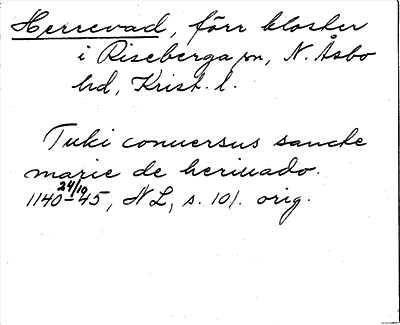 Herrevad, förr kloster
i Riseberga sn, N. Åsbo
hd, Krist. l.
Tuki conuersus sancte
marie de heriuado.
24/10
1140-45, NL, s. 101. orig.